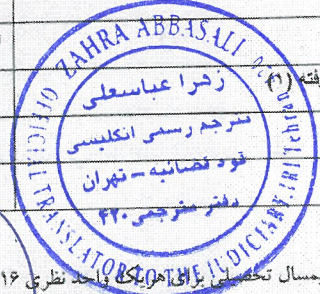 ZAHRA ABBASALI
OFFICIAL TRANSLATOR TO THE JUDICIARY
زهرا عباسعلی
مترجم رسمی انگلیسی
قوه قضائیه - تهران
دفتر مترجمی ۴۲۰
فته (۱)
یمسال تحصیلی برای هر یک واحد نظری ۱۶